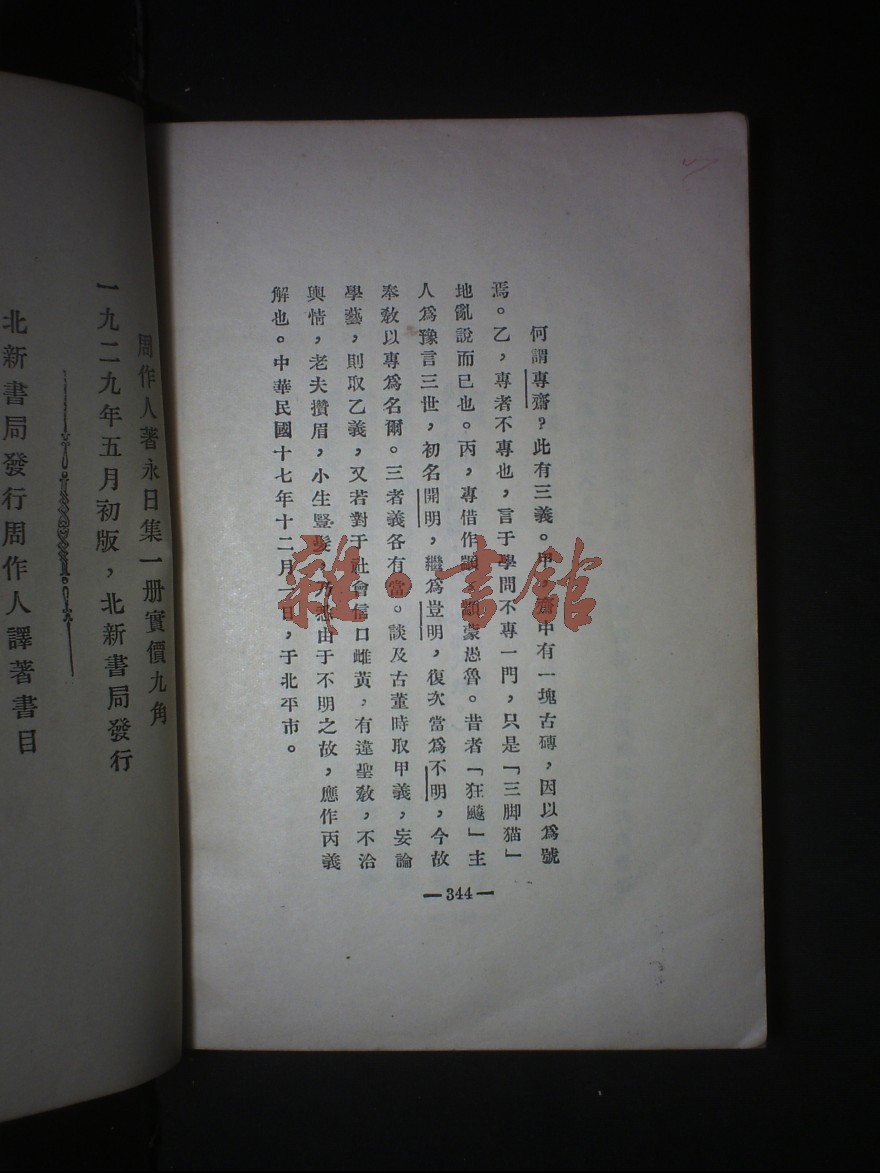 何謂專齋?此有三義。甲,齋中有一塊古磚,因以爲號
焉。乙,專者不專也,言于學問不專一門,只是「三脚猫」
地亂說而已也。丙,專借作顓,顓蒙愚魯。昔者「狂飈」主
人爲豫言三世,初名開明,繼爲豈明,復次當爲不明,今故
奉敎以專爲名爾。三者義各有當。談及古董時取甲義,妄論
學藝,則取乙義,又若對于社會信口雌黃,有違聖敎,不治
輿情,老夫攢眉,小生豎髮,乃悉由于不明之故,應作丙義
解也。中華民國十七年十二月一日,于北平市。
—344—
周作人著永日集一册實價九角
一九二九年五月初版,北新書局發行
北新書局發行周作人譯著書目
雜·書館